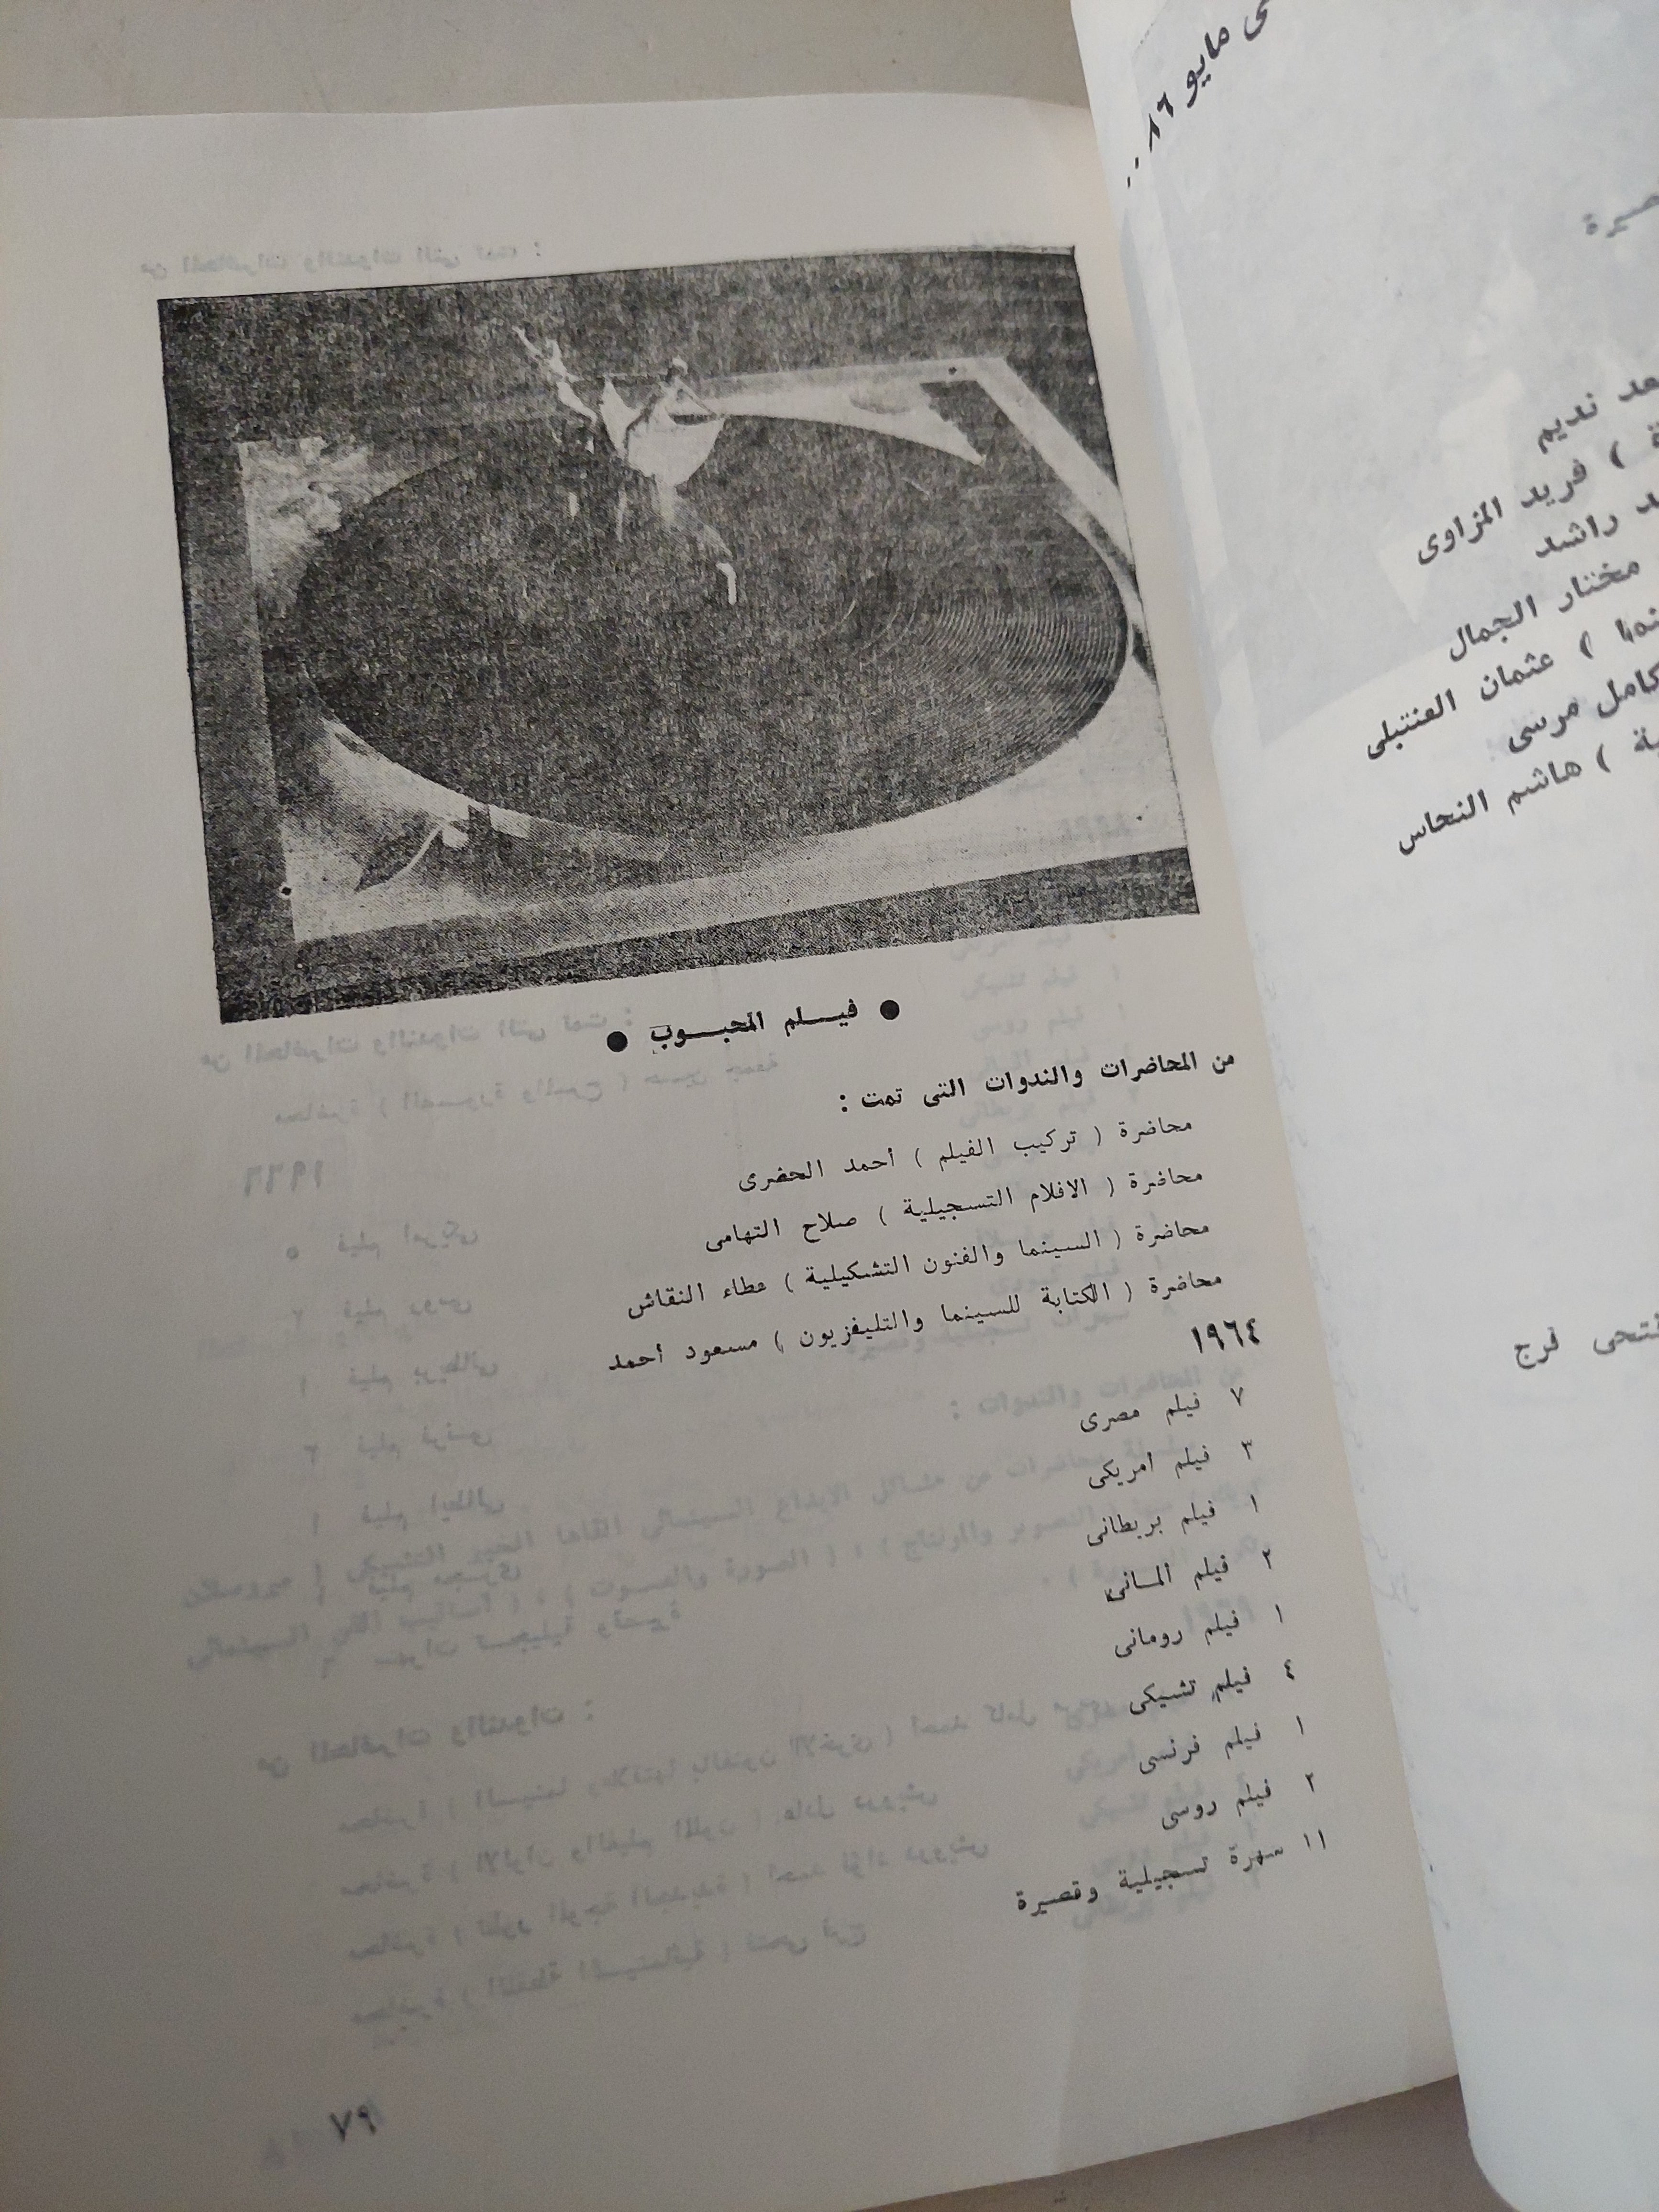 ● فيلم المحبوب ●
من المحاضرات والندوات التى تمت :
محاضرة ( تركيب الفيلم ) أحمد الحضرى
محاضرة ( الافلام التسجيلية ) صلاح التهامى
محاضرة ( السينما والفنون التشكيلية ) عطاء النقاش
محاضرة ( الكتابة للسينما والتليفزيون ) مسعود أحمد
١٩٦٤
٧ فيلم مصرى
٣ فيلم امريكى
١ فيلم بريطانى
٢ فيلم المانى
١ فيلم رومانى
٤ فيلم تشيكى
١ فيلم فرنسى
٢ فيلم روسى
١١ سهرة تسجيلية وقصيرة
٩٧
مايو ٨٦ ..
نديم
) فريد المزاوى
راشد
مختار الجمال
) عثمان العنتبلى
كامل مرسى
) هاشم النحاس
فتحى فرج